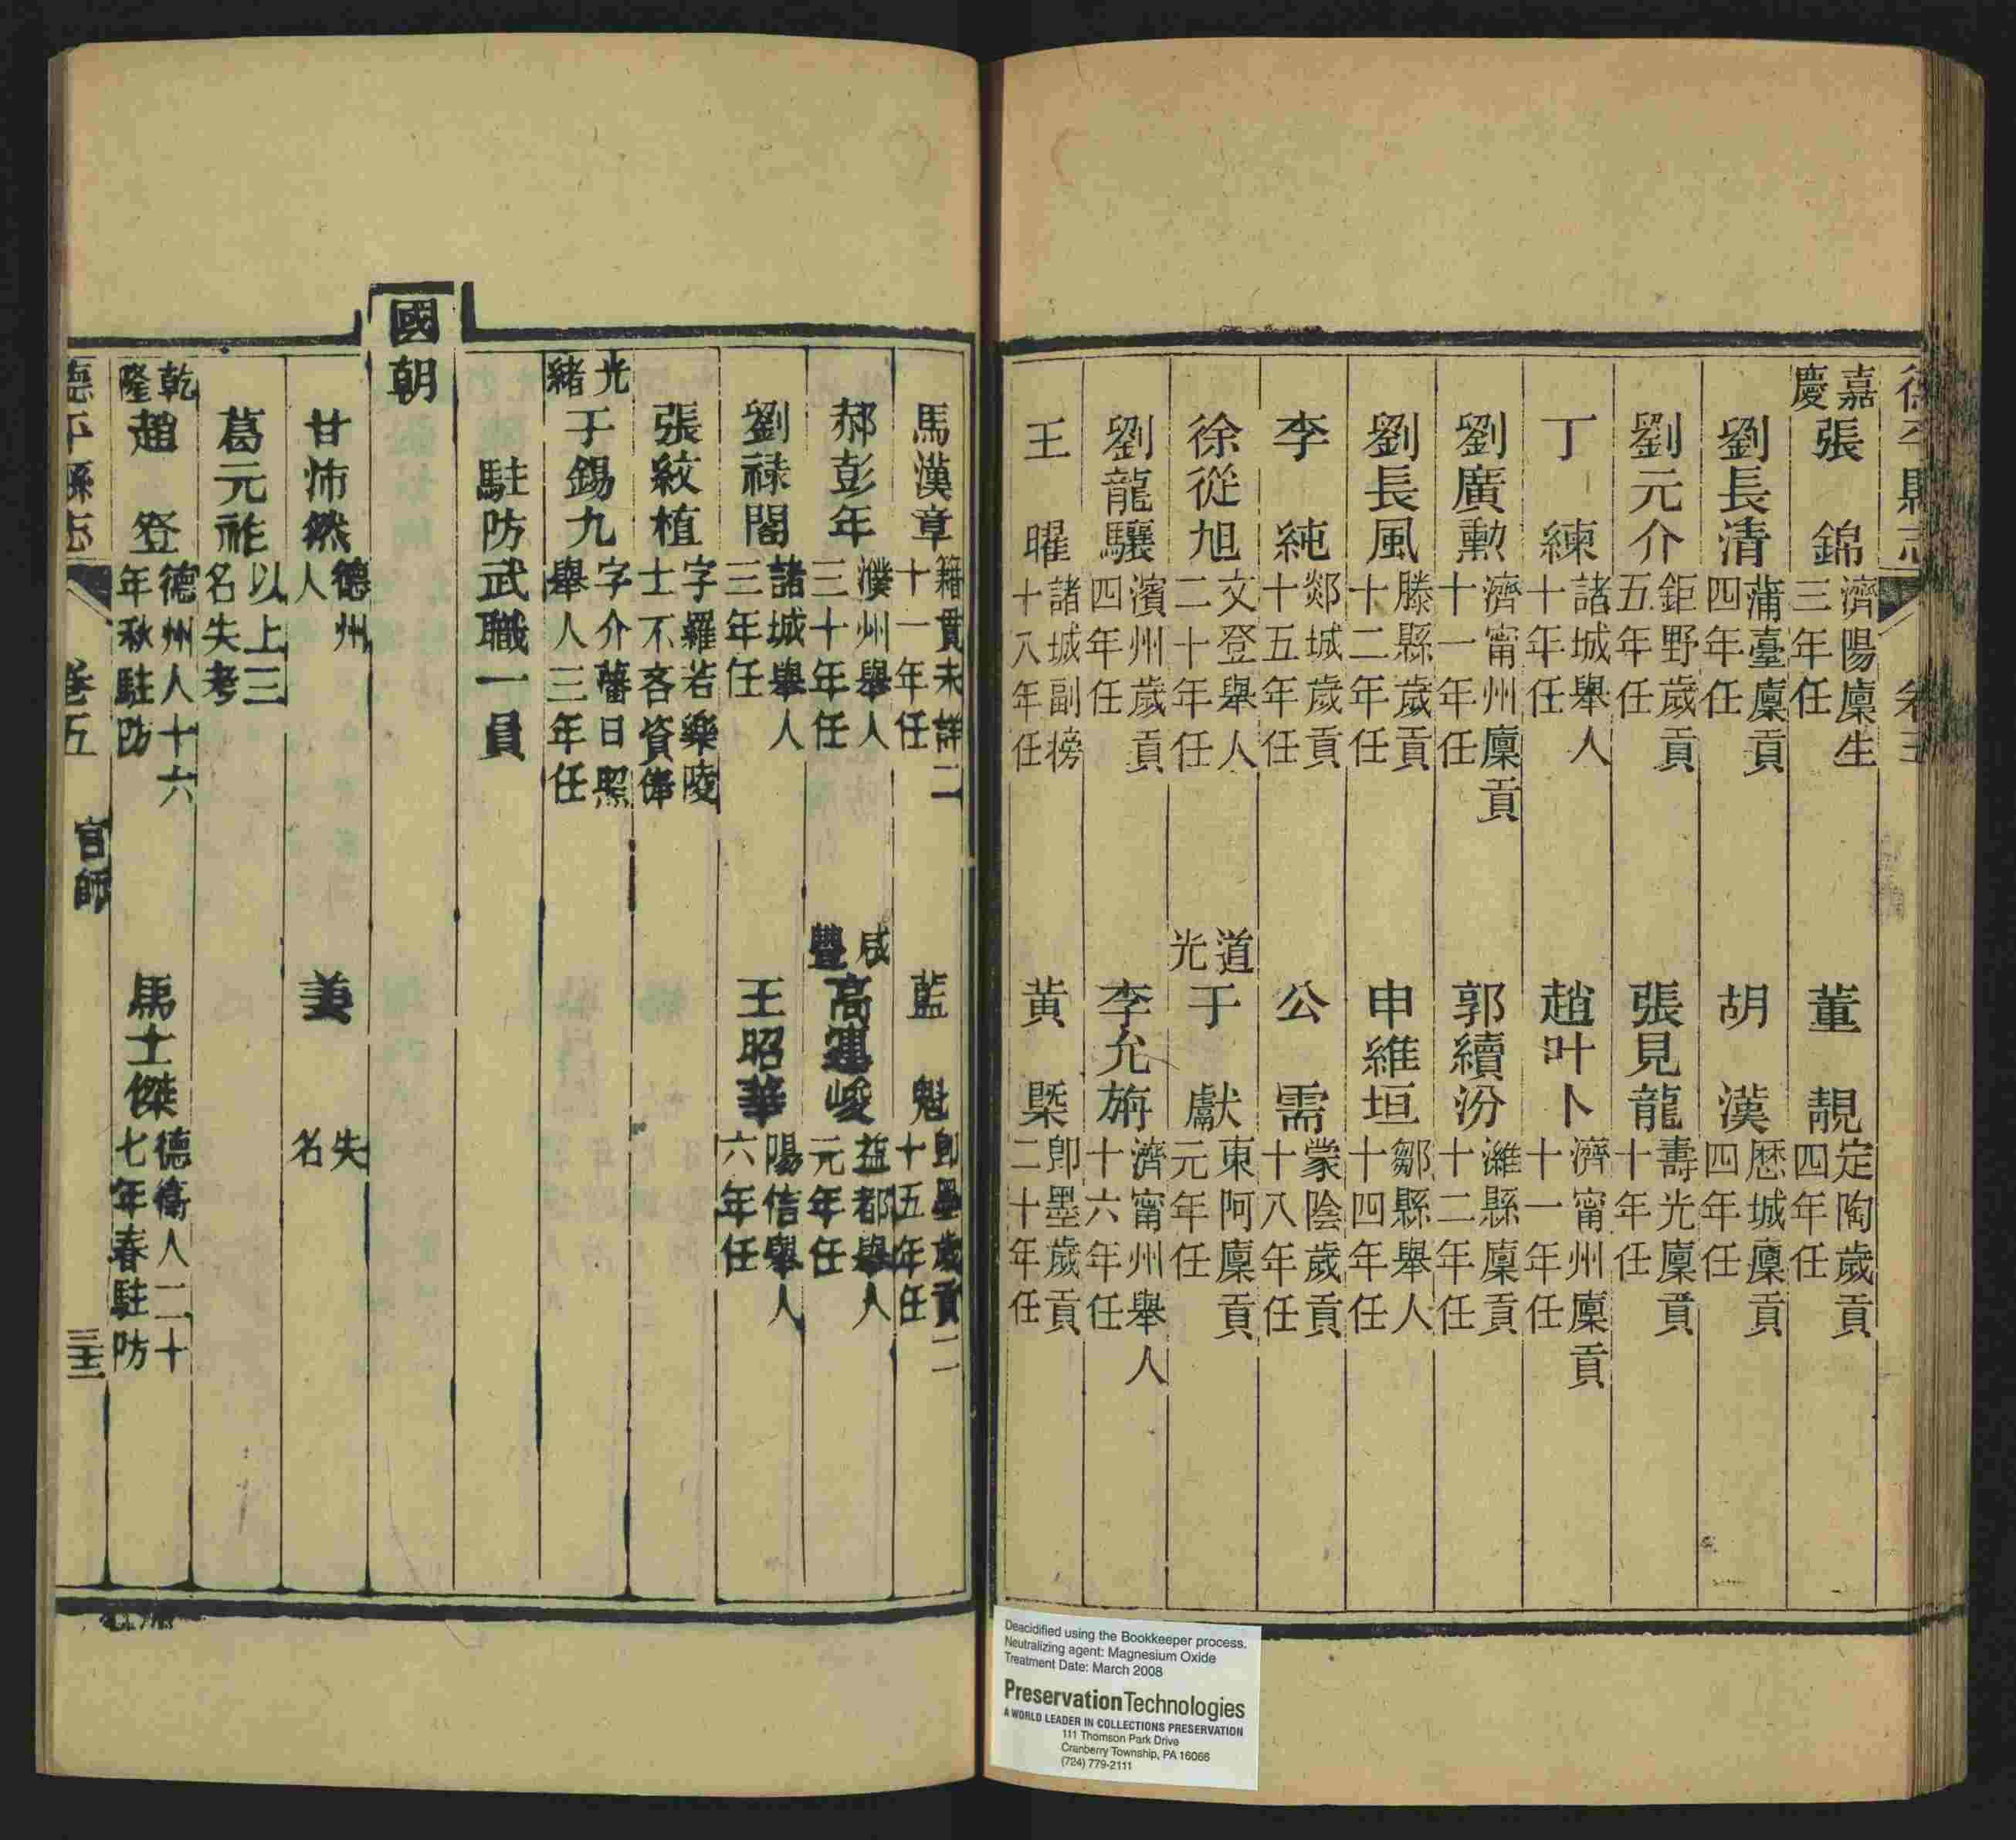 德平縣志 卷五
嘉慶 張錦 濟陽廩生三年任 董靚 定陶歲貢四年任
劉長清 蒲臺廩貢四年任 胡漢 歷城廩貢四年任
劉元介 鉅野歲貢五年任 張見龍 壽光廩貢十年任
丁練 諸城舉人十年任 趙叶卜 濟甯州廩貢十一年任
劉廣勳 濟甯州廩貢十一年任 郭續汾 濰縣廩貢十二年任
劉長風 滕縣歲貢十二年任 申維垣 鄒縣舉人十四年任
李純 郯城歲貢十五年任 公需 蒙陰歲貢十八年任
徐從旭 文登舉人二十年任 道光 于獻 東阿廩貢元年任
劉龍驤 濱州歲貢四年任 李允旃 濟甯州舉人十六年任
王曜 諸城副榜十八年任 黃槩 卽墨歲貢二十年任
馬漢章 籍貫未詳二十一年任 藍魁 卽墨歲貢二十五年任
郝彭年 濮州舉人三十年任 咸豐 高運峻 益都舉人元年任
劉祿閣 諸城舉人三年任 王昭華 陽信舉人六年任
張紋植 字羅若樂陵士不吝資俸
光緒 于錫九 字介藩日照舉人三年任
駐防武職一員
國朝
甘沛然 德州人 姜 失名
葛元祚 以上三名失考
乾隆 趙登 德州人十六年秋駐防 馬士傑 德衛人二十七年春駐防
德平縣志 卷五 官師 三十三
Deacidified using the Bookkeeper process.
Neutralizing agent: Magnesium Oxide
Treatment Date: March 2008
Preservation Technologies
A WORLD LEADER IN COLLECTIONS PRESERVATION
111 Thomson Park Drive
Cranberry Township, PA 16066
(724) 779-2111